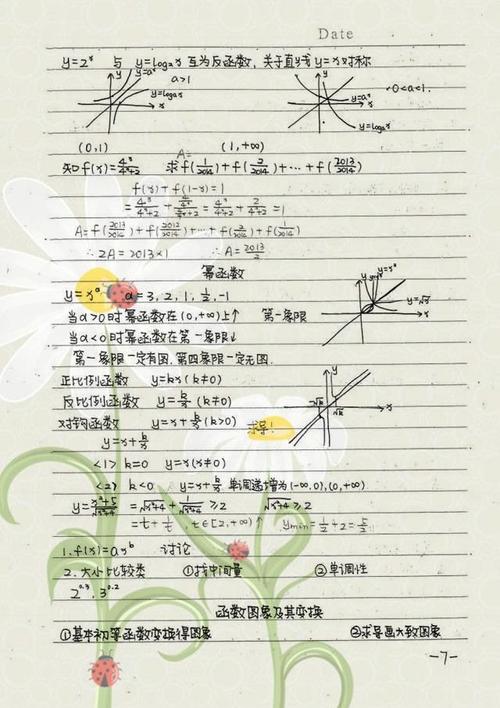 Date
y=2ˣ 与 y=log₂x 互为反函数,关于直线 y=x 对称
y y=aˣ a>1 y=logax x
y 0<a<1. y=aˣ x y=logax
(0,1) (1,+∞)
知 f(x)=4ˣ/(4ˣ+2) 求 A= f(1/2014)+f(2/2014)+…+f(2013/2014)
f(x)+f(1-x)=1
=4ˣ/(4ˣ+2)+(4/4ˣ)/(4/4ˣ+2)=4ˣ/(4ˣ+2)+2/(4ˣ+2)
A=f(2013/2014)+f(2012/2014)+…+f(2/2014)+f(1/2014)
∴2A=2013×1 ∴A=2013/2
幂函数
y=xᵃ a=3,2,1,1/2,-1
当a>0时幂函数在(0,+∞)上↑ 第一象限
当a<0时幂函数在第一象限↓
第一象限一定有图.第四象限一定无图.
y y=x² y=√x x
正比例函数 y=kx(k≠0)
反比例函数 y=k/x(k≠0)
对钩函数 y=x+k/x(k>0) 求导!
y √k √k x
y=x+k/x
<1> k=0 y=x(x≠0)
<2> k<0 y=x+k/x 单调递增为(-∞,0),(0,+∞)
y=(x²+5)/√(x²+4) =√(x²+4)+1/√(x²+4)≥2 √(x²+4)≥2
=t+1/t ,t∈[2,+∞)↑ ymin=1/2+2=5/2
1.f(x)=axᵇ 讨论
2.大小比较类 ①找中间量 ②单调性
2^0.3,3^0.2
函数图象及其变换
①基本初等函数变换得图象 ②求导画大致图象
-7-